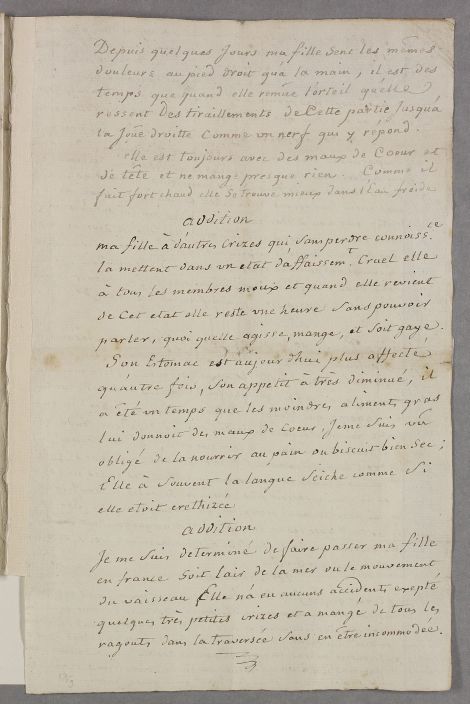 Depuis quelques Jours ma fille Sent les mêmes
douleurs au pied droit qu'à la main, il est des
temps que quand elle remüe l'orteil quelle
ressent des tiraillements de Cette partie Jusqu'à
la Joüe droitte Comme un nerf qui y repond.
elle est toujours avec des maux de Coeur et
de tête et ne mange presque rien. Comme il
fait fort chaud elle Se trouve mieux dans l'Eau froide
addition
ma fille à d'autres Crizes qui, Sans perdre connoiss.ce
la mettent dans un etat d'affaissem.t Cruel elle
à tous les membres moux et quand elle revient
de Cet etat elle reste une heure Sans pouvoir
parler, quoi quelle agisse, mange, et Soit gaye.
Son Estomac est aujourd'hui plus affecté
qu'autre fois, Son appetit à très diminué, il
a été un temps que les moindres aliments gras
lui donnoit des maux de Coeur, Je me Suis vû
obligé de la nourrir au pain ou biscuit bien Sec;
Elle à Souvent la langue Seiche comme Si
elle etoit erethizée
addition
Je me Suis determiné de faire passer ma fille
en france Soit l'air de la mer ou le mouvement
du vaisseau Elle na eu aucuns accidents exepté
quelques très petites crizes et a mangé de tous les
ragouts dans la traversée Sans en être incommodée.